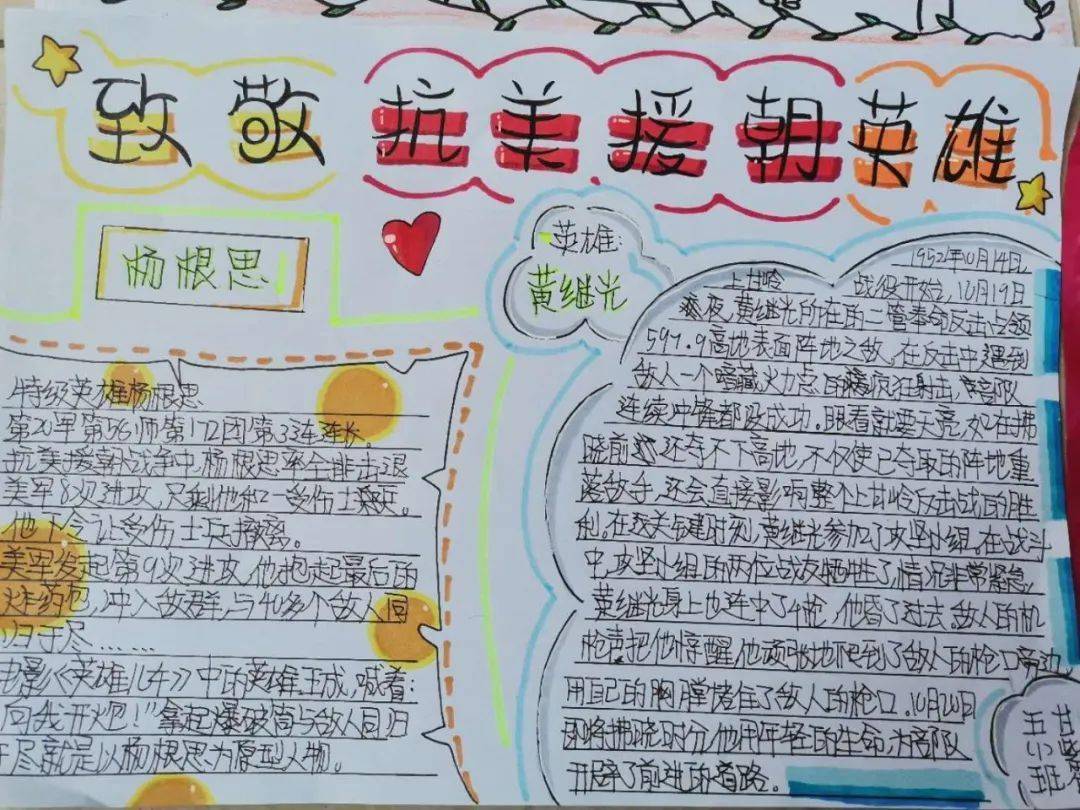 致敬抗美援朝英雄
杨根思
特级英雄杨根思
第20军第58师第172团第3连连长。
抗美援朝战争中,杨根思率全排击退
美军8次进攻,只剩他和一受伤士兵。
他下令让受伤士兵撤离。
美军发起第9次进攻,他抱起最后的
炸药包,冲入敌群,与40多个敌人同
归于尽……
电影《英雄儿女》中的英雄王成,喊着:
向我开炮!"拿起爆破筒与敌人同归
于尽就是以杨根思为原型人物。
英雄:
黄继光
1952年10月14日,
上甘岭 战役开始,10月19日
夜,黄继光所在的二营奉命反击占领
597.9高地表面阵地之敌,在反击中遇到
敌人一个暗藏火力点的疯狂射击,部队
连续冲锋都没成功。眼看就要天亮,如在拂
晓前还夺不下高地,不仅使已夺取的阵地重
落敌手,还会直接影响整个上甘岭反击战的胜
利。在这关键时刻,黄继光参加了攻坚小组。在战斗
中,攻坚小组的两位战友牺牲了,情况非常紧急,
黄继光身上也连中了4枪,他昏了过去,敌人的机
枪声把他惊醒,他顽强地爬到了敌人的枪口旁边,
用自己的胸膛堵住了敌人的枪口。10月20日
即将拂晓时分,他用年轻的生命,为部队
开辟了前进的道路。